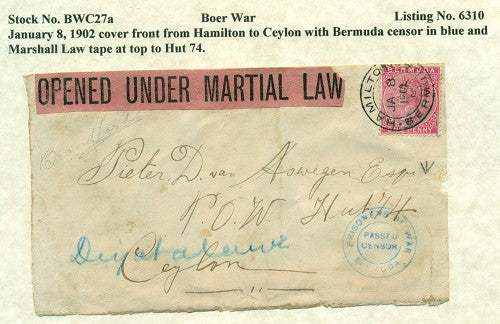 Stock No. BWC27a Boer War Listing No. 6310
January 8, 1902 cover front from Hamilton to Ceylon with Bermuda censor in blue and
Marshall Law tape at top to Hut 74.
OPENED UNDER MARTIAL LAW
HAMILTON BERMUDA
JA 8
BERMUDA
PENNY
Pieter D. van Aswegen Esq
P.O.W. Hut 74
PRISONERS OF WAR
PASSED
CENSOR
Diyatalawa
Ceylon